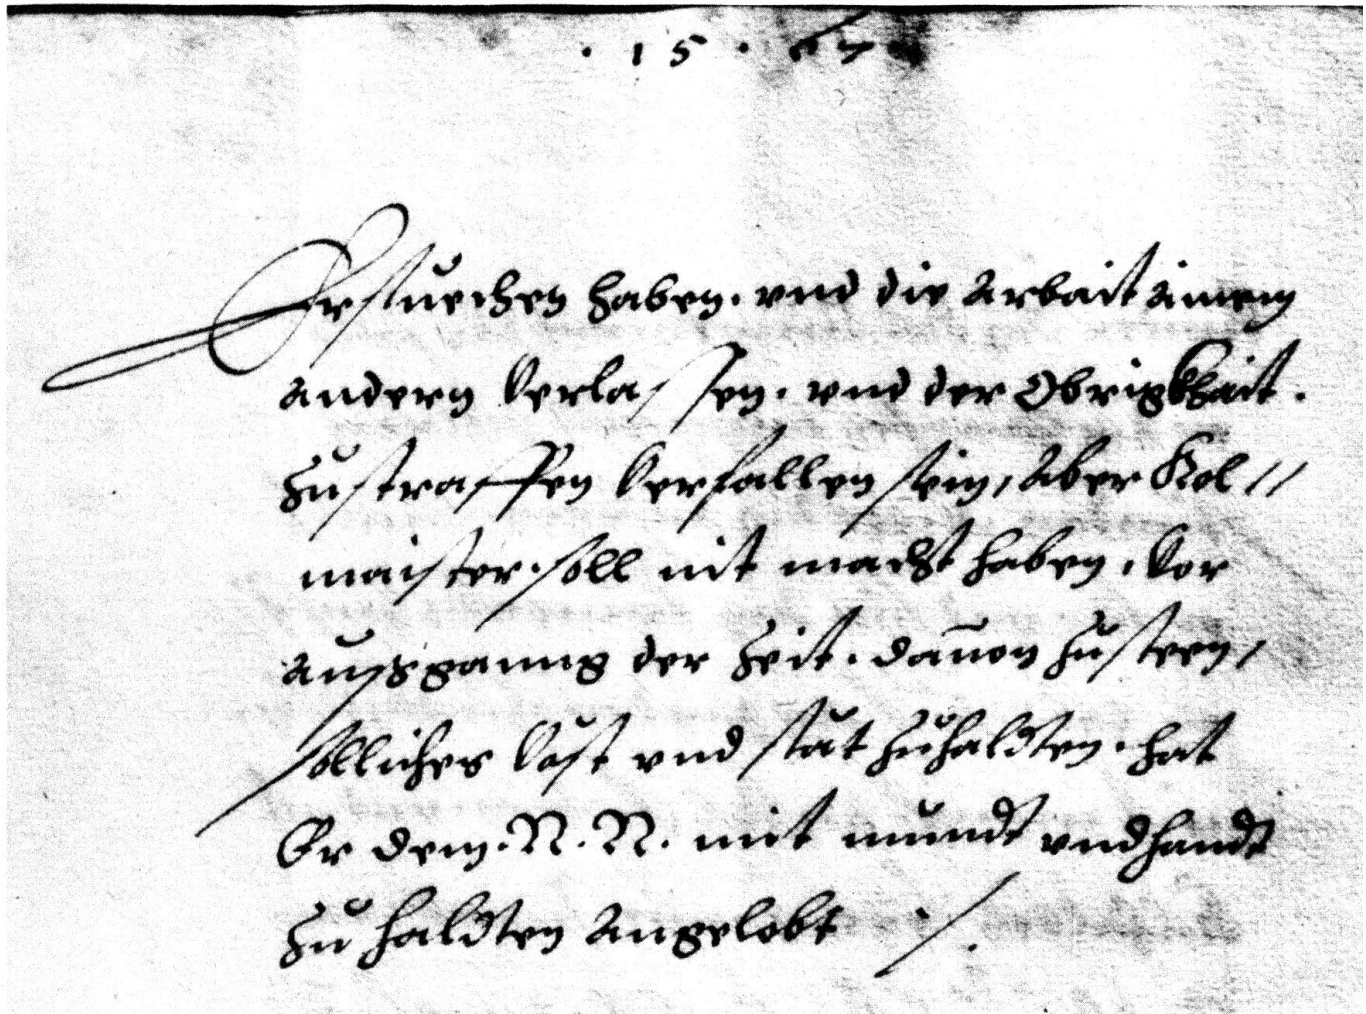 · 15 · 67 ·
Ersuechen haben. vnd die Arbait ainem
andern Verlassen. vnd der Obrigkhait.
Zustraffen Verfallen sein, Aber Kol //
maister. soll nit macht haben. Vor
aussganng der Zeit. dauon Zusteen,
solliches Vösst vnd stät Zuhaldten. hat
Er dem. N. N. mit mundt vnd handt
Zu haldten Angelobt ·/.